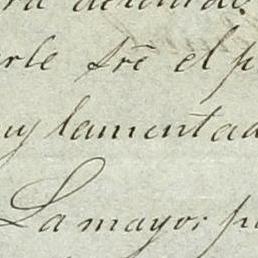 erle sre el p
uy lamentad
La mayor pa